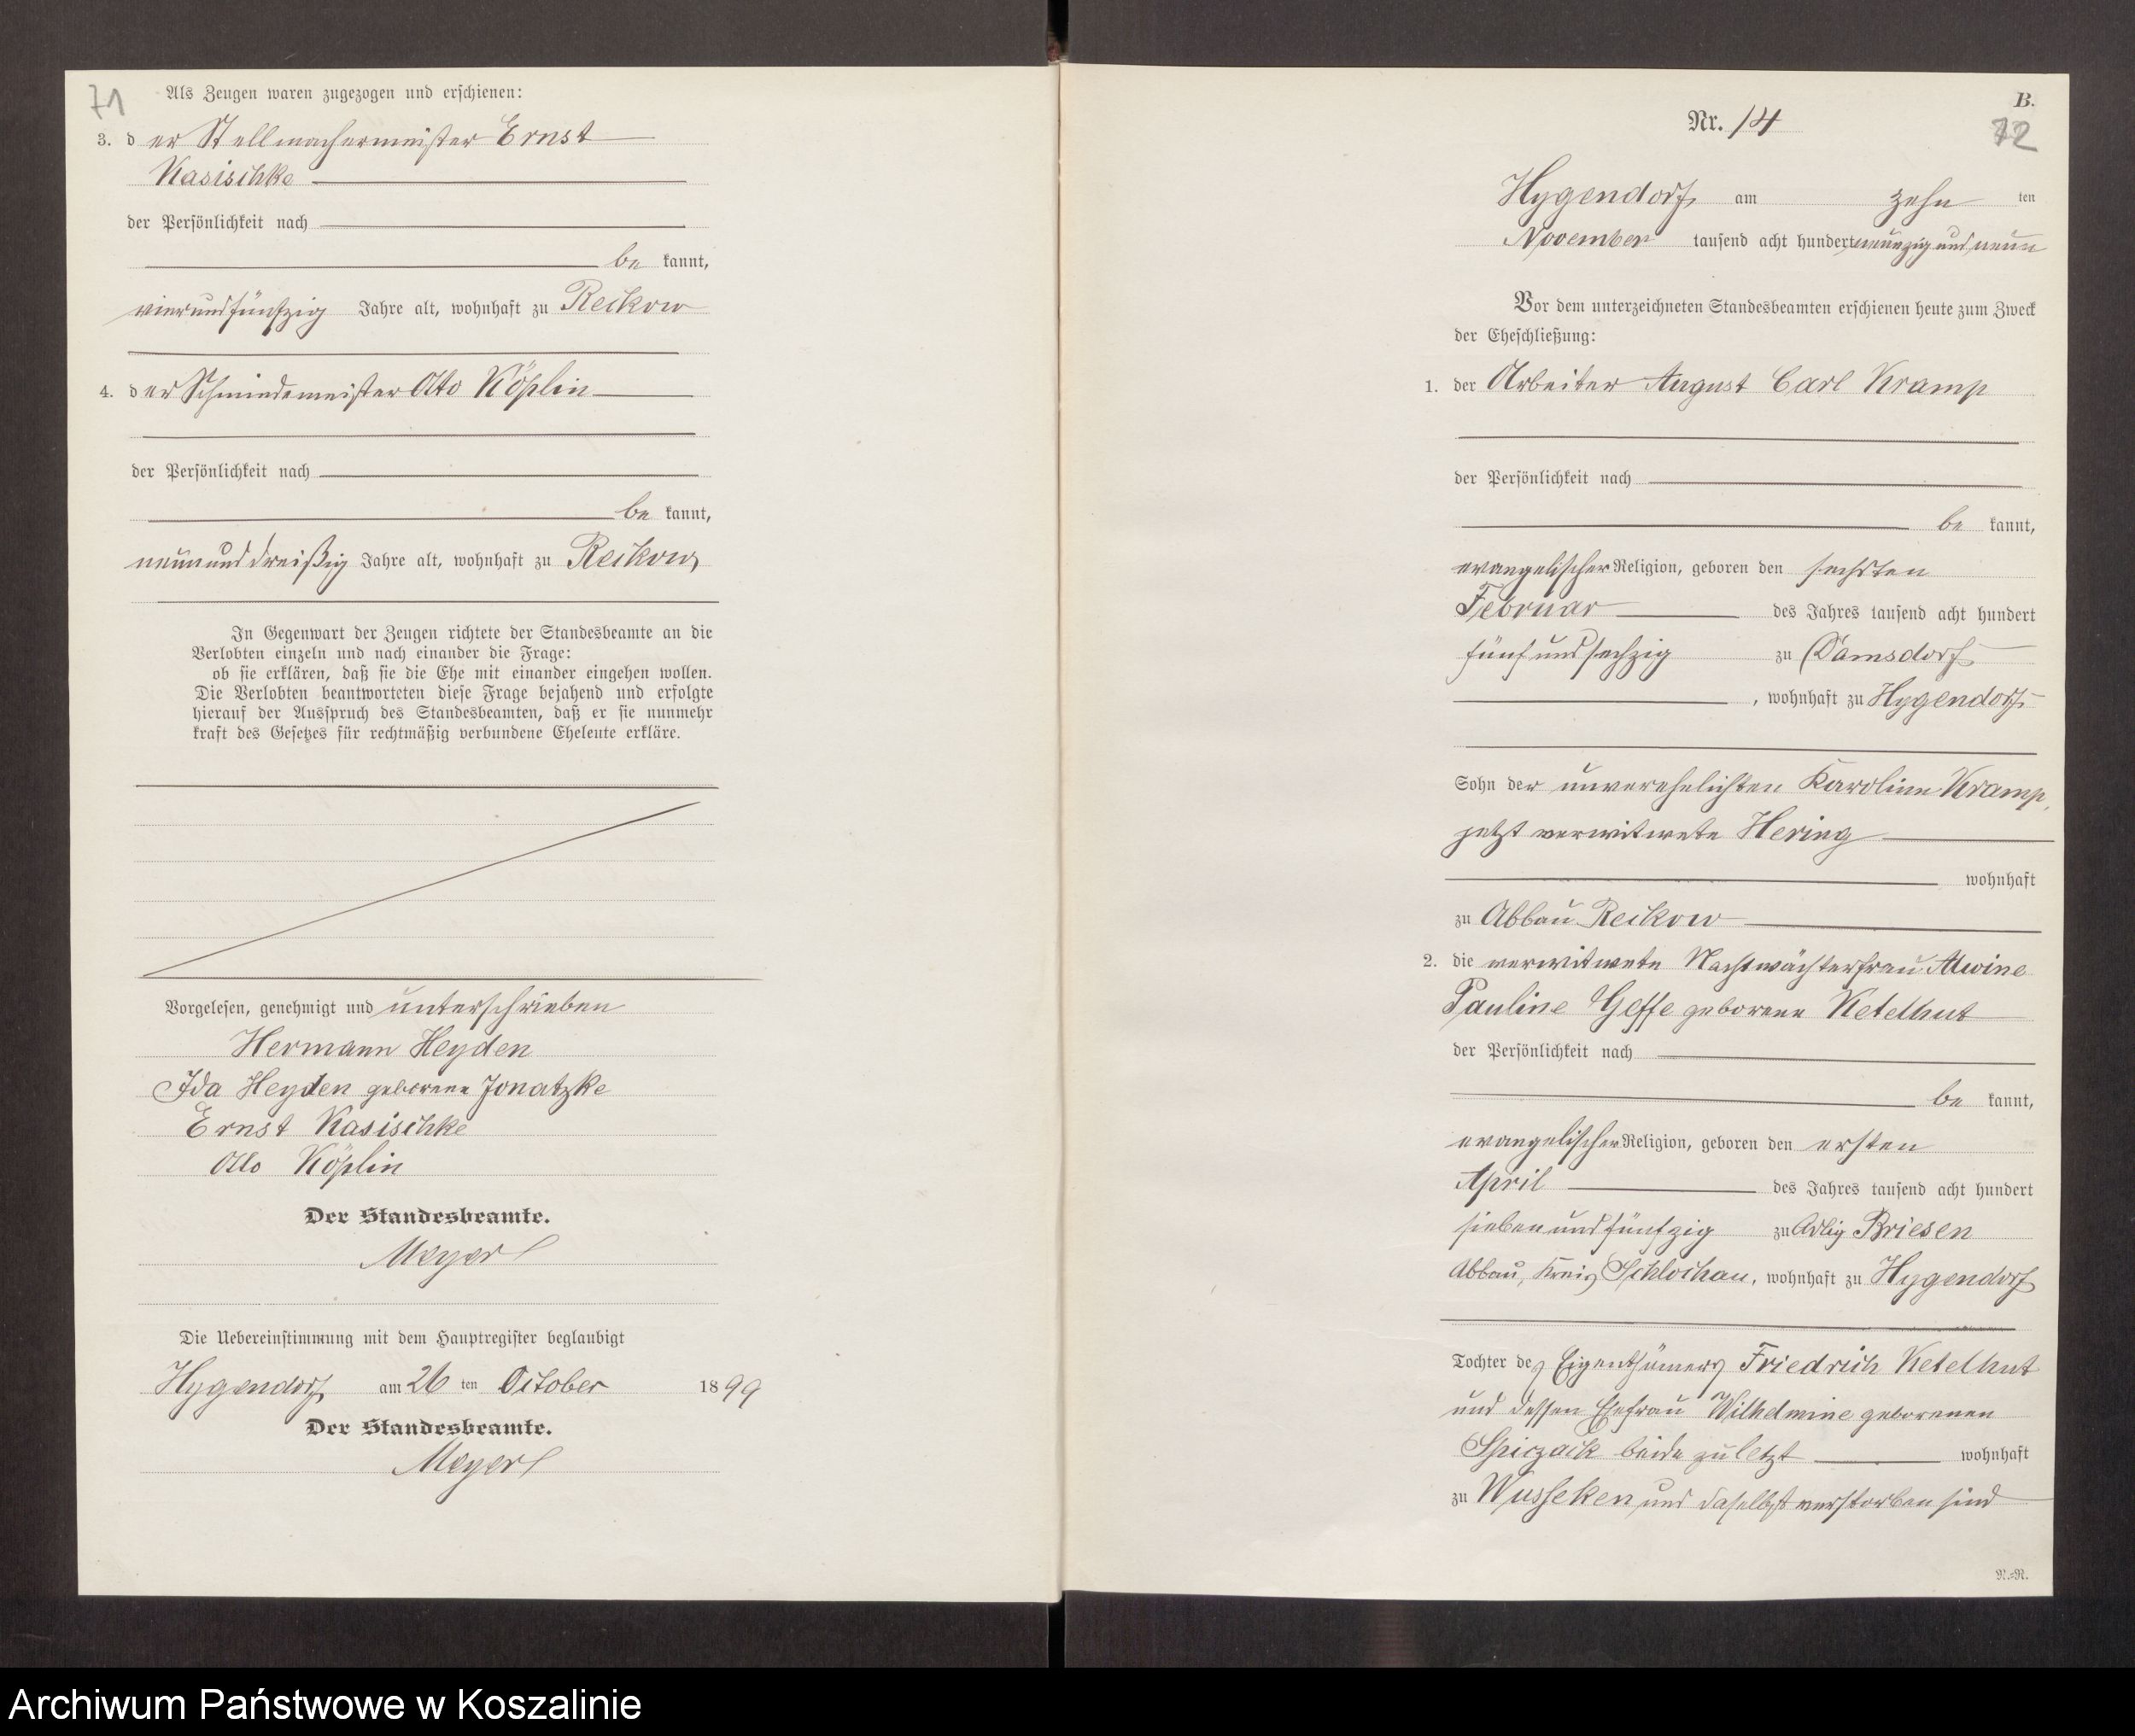 71
Als Zeugen waren zugezogen und erschienen:
3. der Stellmachermeister Ernst
Kasischke
der Persönlichkeit nach
be kannt,
vierundfünfzig Jahre alt, wohnhaft zu Reikow
4. der Schmiedemeister Otto Köplin
der Persönlichkeit nach
be kannt,
neununddreißig Jahre alt, wohnhaft zu Reikow,
In Gegenwart der Zeugen richtete der Standesbeamte an die
Verlobten einzeln und nach einander die Frage:
ob sie erklären, daß sie die Ehe mit einander eingehen wollen.
Die Verlobten beantworteten diese Frage bejahend und erfolgte
hierauf der Ausspruch des Standesbeamten, daß er sie nunmehr
kraft des Gesetzes für rechtmäßig verbundene Eheleute erkläre.
Vorgelesen, genehmigt und unterschrieben
Hermann Heyden
Ida Heyden geborene Jonatzke
Ernst Kasischke
Otto Köplin
Der Standesbeamte.
Meyer
Die Uebereinstimmung mit dem Hauptregister beglaubigt
Hygendorf am 26 ten October 1899
Der Standesbeamte.
Meyer
B.
Nr. 14
72
Hygendorf, am zehn ten
November tausend acht hundert neunzig und neun
Vor dem unterzeichneten Standesbeamten erschienen heute zum Zweck
der Eheschließung:
1. der Arbeiter August Carl Kramp
der Persönlichkeit nach
be kannt,
evangelischer Religion, geboren den sechsten
Februar des Jahres tausend acht hundert
fünf und sechzig zu Damsdorf
, wohnhaft zu Hygendorf
Sohn der unverehelichten Karoline Kramp,
jetzt verwitwete Hering
wohnhaft
zu Abbau Reikow
2. die verwitwete Nachtwächterfrau Alwine
Pauline Geffe geborene Ketelhut
der Persönlichkeit nach
be kannt,
evangelischer Religion, geboren den ersten
April des Jahres tausend acht hundert
sieben und fünfzig zu Adlig Briesen
Abbau, Kreis Schlochau, wohnhaft zu Hygendorf
Tochter des Eigenthümers Friedrich Ketelhut
und dessen Ehefrau Wilhelmine geborenen
Spiczack beide zuletzt wohnhaft
zu Wusseken und daselbst verstorben sind
N.=N.
Archiwum Państwowe w Koszalinie